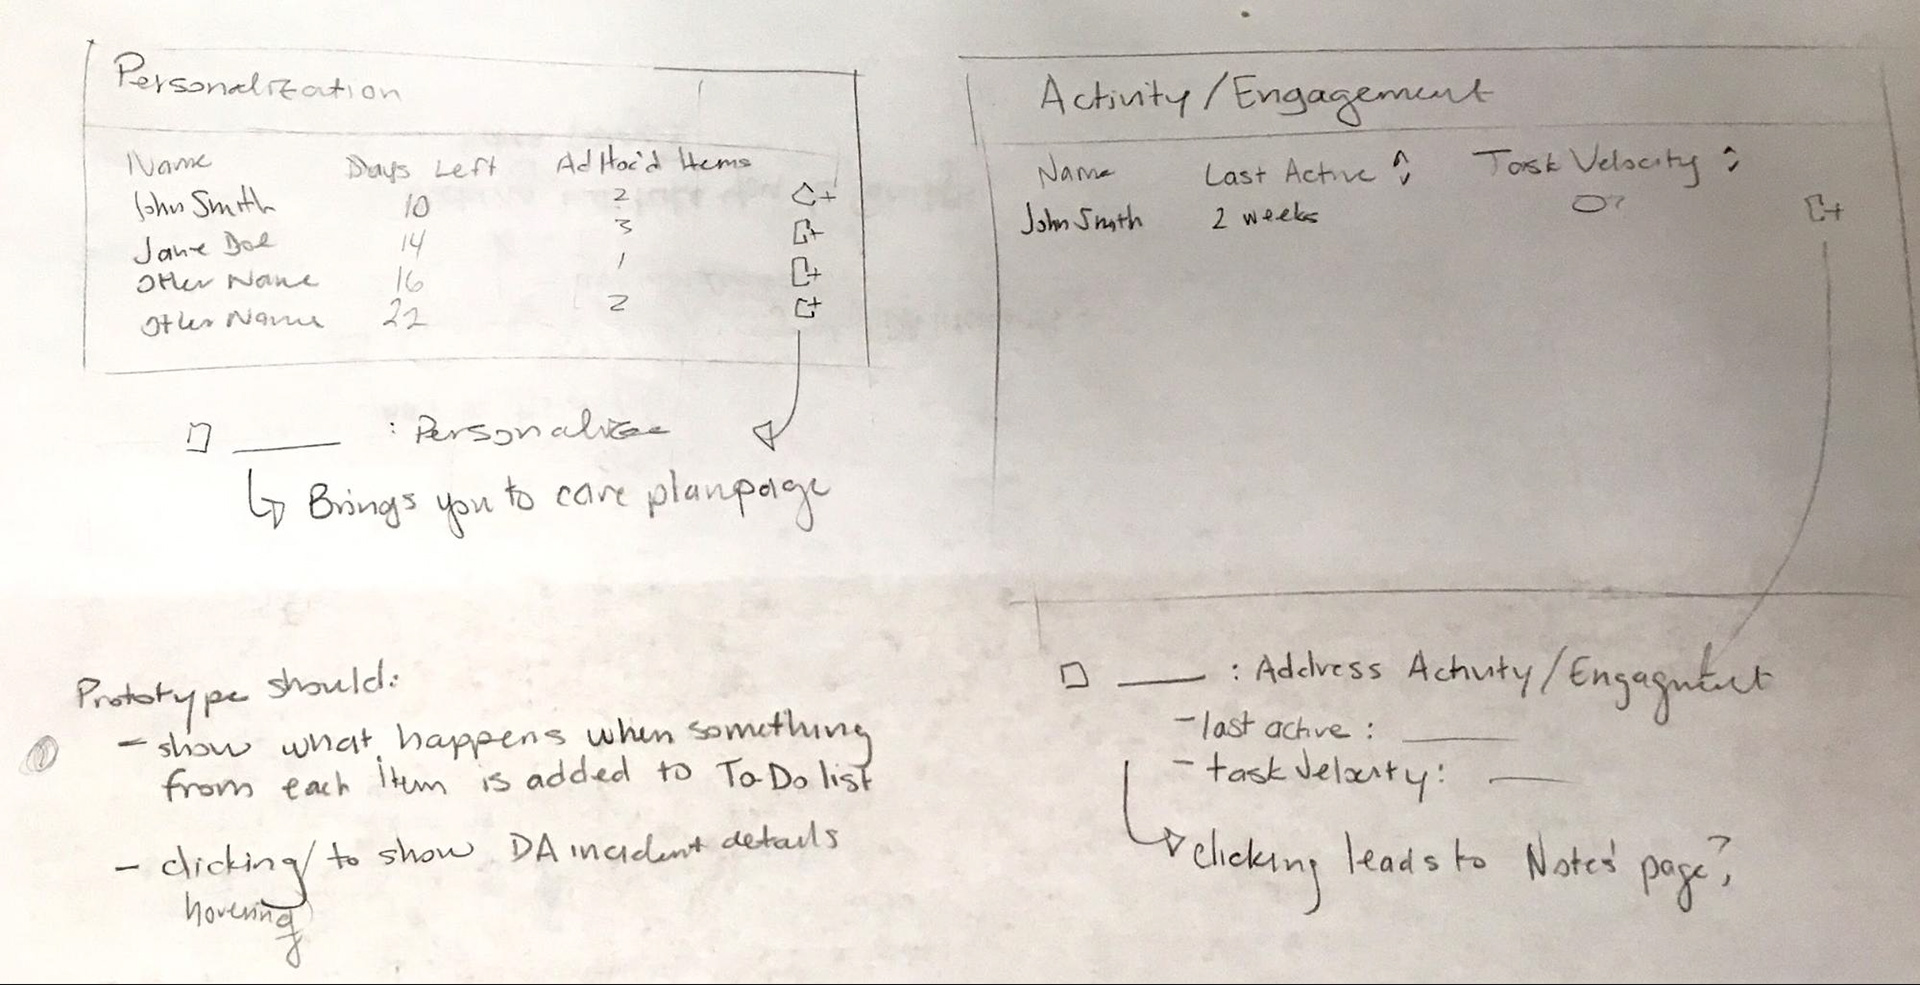 Personalization
Name Days Left AdHoc'd Items
John Smith 10 2
Jane Doe 14 3
Other Name 16 1
Other Name 22 2
____ : Personalize
Brings you to care plan page
Activity/Engagement
Name Last Active Task Velocity
John Smith 2 weeks 0?
____ : Address Activity/Engagment
- last active : ____
- task velocity: ____
clicking leads to Notes' page?
Prototype should:
- show what happens when something
from each item is added to To Do list
- clicking/ to show DA incident details
hovering